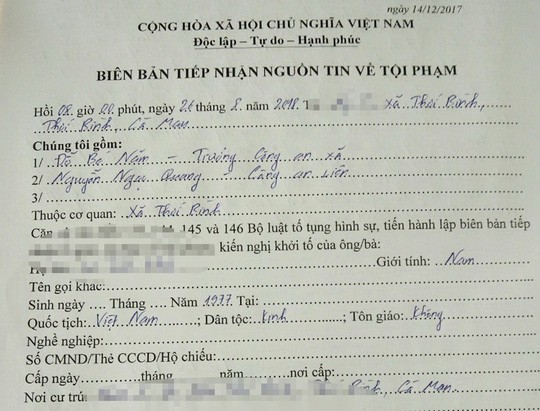 ngày 14/12/2017
CỘNG HÒA XÃ HỘI CHỦ NGHĨA VIỆT NAM
Độc lập – Tự do – Hạnh phúc
BIÊN BẢN TIẾP NHẬN NGUỒN TIN VỀ TỘI PHẠM
Hồi 08 giờ 00 phút, ngày 26 tháng 8 năm 2018. xã Thới Bình,
Thới Bình, Cà Mau
Chúng tôi gồm:
1/ Năm – Trưởng Công an xã
2/ Nguyễn Ngọc Quang – Công an viên
3/
Thuộc cơ quan: Xã Thới Bình
Căn 145 và 146 Bộ luật tố tụng hình sự, tiến hành lập biên bản tiếp
kiến nghị khởi tố của ông/bà:
Họ Giới tính: Nam
Tên gọi khác:
Sinh ngày .... Tháng .... Năm 1977 Tại:
Quốc tịch: Việt Nam; Dân tộc: Kinh; Tôn giáo: Không
Nghề nghiệp:
Số CMND/Thẻ CCCD/Hộ chiếu:
Cấp ngày tháng năm nơi cấp:
Nơi cư trú: Thới Bình, Cà Mau